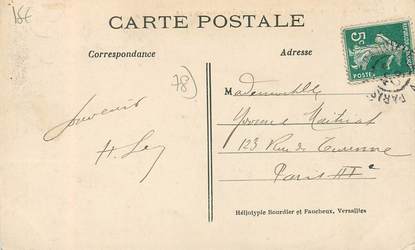 15E
CARTE POSTALE
Correspondance
Adresse
5c
POSTES
PARIS
78
Mademoiselle
Yvonne
123 Rue de Turenne
Paris III e
Souvenir
H. Ley
Héliotypie Bourdier et Faucheux, Versailles